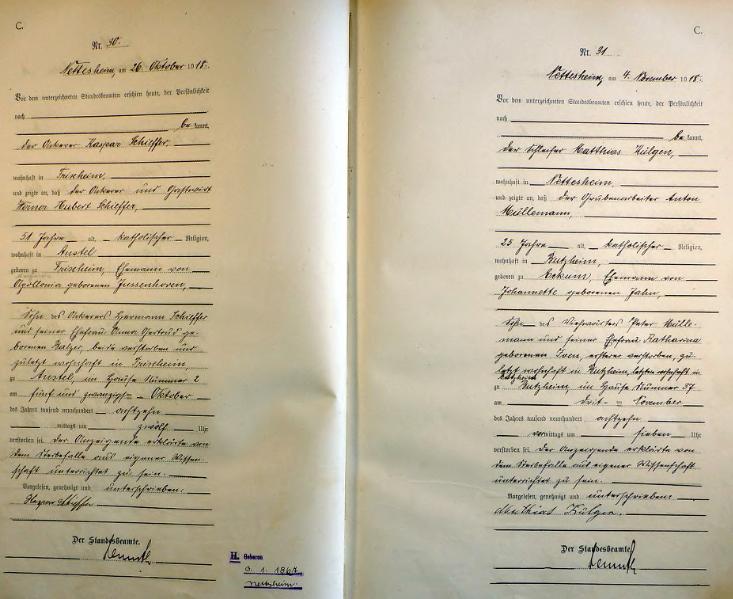 C.
Nr. 30.
Nettesheim, am 26. Oktober 1918.
Vor dem unterzeichneten Standesbeamten erschien heute, der Persönlichkeit
nach
bekannt,
der Ackerer Kaspar Schiffer,
wohnhaft in Frixheim,
und zeigte an, daß der Ackerer und Gastwirt
Werner Hubert Schiffer,
51 Jahre alt, katholischer Religion,
wohnhaft in Anstel
geboren zu Frixheim, Ehemann von
Apollonia geborenen Jussenhoven,
Sohn des Ackerers Hermann Schiffer
und seiner Ehefrau Anna Gertrud ge-
borenen Balzer, beide verstorben und
zuletzt wohnhaft in Frixheim,
zu Anstel, im Hause Nummer 2
am fünf und zwanzigsten Oktober
des Jahres tausend neunhundert achtzehn
mittags um zwölf Uhr
verstorben sei. Der Anzeigende erklärte von
dem Sterbefalle aus eigener Wissen-
schaft unterrichtet zu sein.
Vorgelesen, genehmigt und unterschrieben.
Kaspar Schiffer
Der Standesbeamte.
H. Geboren
1. 1867
Nettesheim
C.
Nr. 31.
Nettesheim, am 4. November 1918.
Vor dem unterzeichneten Standesbeamten erschien heute, der Persönlichkeit
nach
bekannt,
der Schleifer Matthias Külgen,
wohnhaft in Nettesheim,
und zeigte an, daß der Grubenarbeiter Anton
Müllemann,
25 Jahre alt, katholischer Religion,
wohnhaft in Butzheim,
geboren zu Eckum, Ehemann von
Johannette geborenen Jahn,
Sohn des Viehwärters Peter Mülle-
mann und seiner Ehefrau Katharina
geborenen Iven, ersterer verstorben, zu-
letzt wohnhaft in Butzheim, letztere wohnhaft in
Butzheim
zu Butzheim, im Hause Nummer 57
am dritten November
des Jahres tausend neunhundert achtzehn
vormittags um sieben Uhr
verstorben sei. Der Anzeigende erklärte von
dem Sterbefalle aus eigener Wissenschaft
unterrichtet zu sein.
Vorgelesen, genehmigt und unterschrieben
Mathias Külgen.
Der Standesbeamte